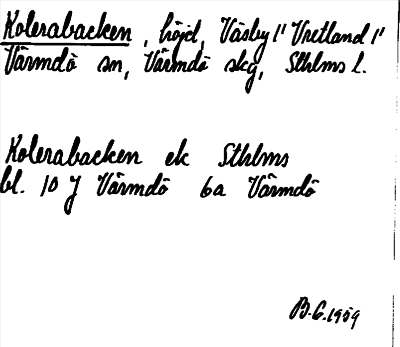 Kolerabacken, höjd, Väsby 1" Vretland 1"
Värmdö sn, Värmdö skg, Sthlms l.
Kolerabacken ek Sthlms
bl. 10 J Värmdö 6a Värmdö
B.G. 1959